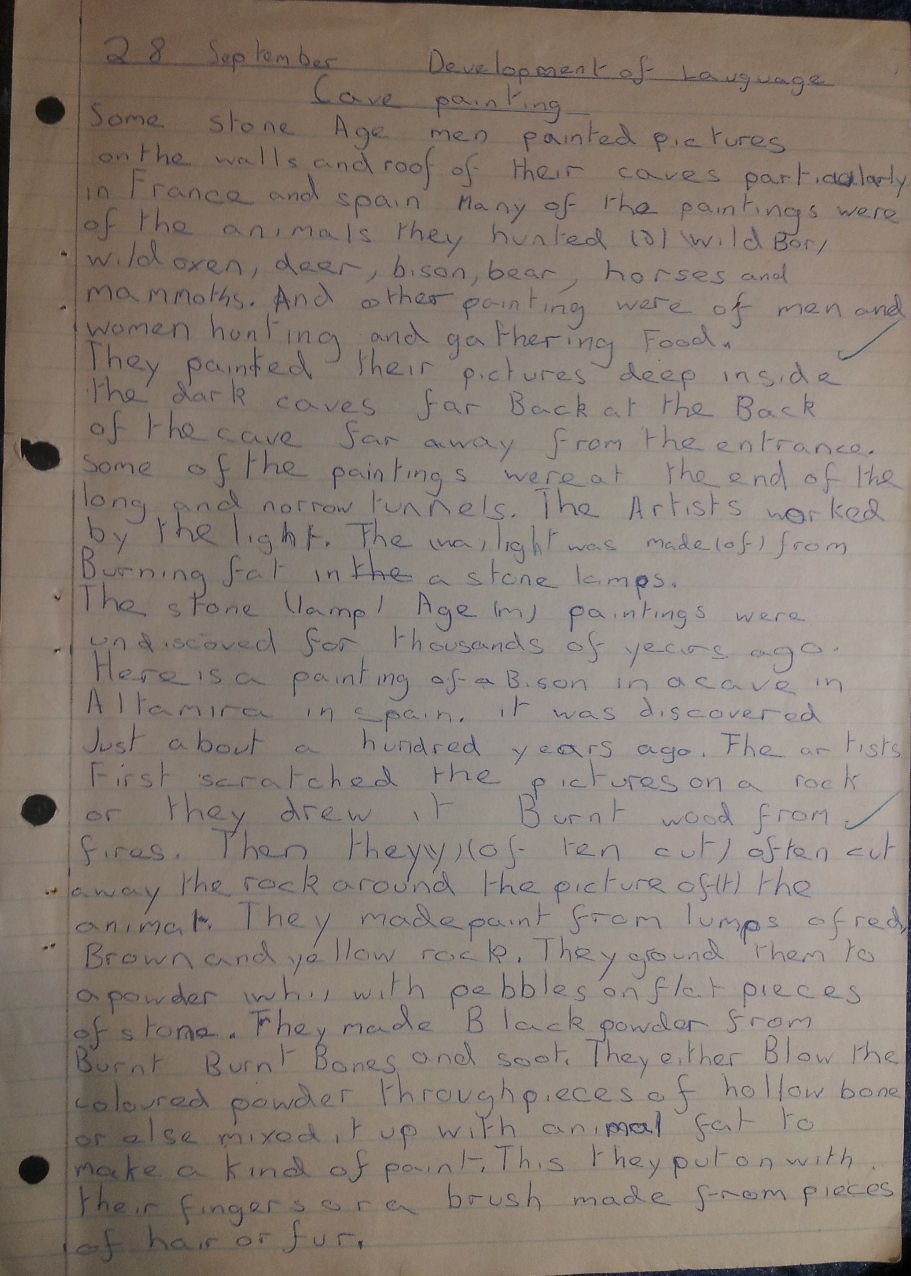 28 September Development of Language
Cave painting
Some stone Age men painted pictures
on the walls and roof of their caves particularly
in France and spain Many of the paintings were
of the animals they hunted (o) wild Bor,
wild oxen, deer, bison, bear, horses and
mammoths. And other painting were of men and
women honting and gathering Food.
They painted their pictures deep inside
the dark caves far Back at the Back
of the cave far away from the entrance.
Some of the paintings were at the end of the
long and norrow tunnels. The Artists worked
by the light. The light was made (of) from
Burning fat in the a stone lamps.
The stone (lamp) Age (m) paintings were
undiscoved for thousands of years ago.
Here is a painting of a Bison in a cave in
Altamira in spain. it was discovered
Just about a hundred years ago. The artists
First scratched the pictures on a rock
or they drew it Burnt wood from
fires. Then they (of ten cut) often cut
away the rock around the picture of (t) the
animal. They made paint from lumps of red,
Brown and yellow rock. They ground them to
a powder with pebbles on flat pieces
of stone. They made Black powder from
Burnt Burnt Bones and soot. They either Blow the
coloured powder through pieces of hollow bone
or else mixed it up with animal fat to
make a kind of paint. This they put on with
their fingers or a brush made from pieces
of hair or fur.